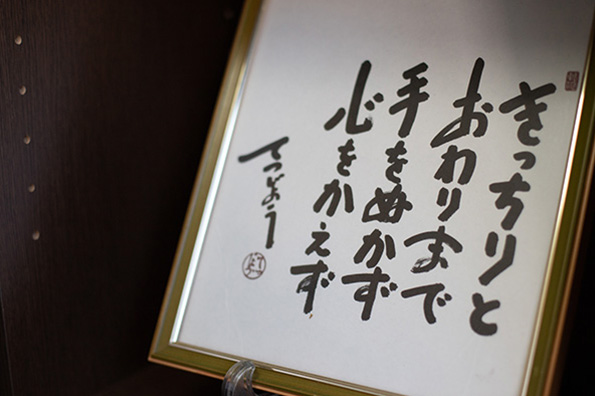 きっちりと
おわりまで
手をぬかず
心をかえず
てつどう